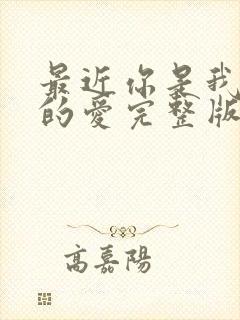 最近你是我
的爱完整版
高嘉陽